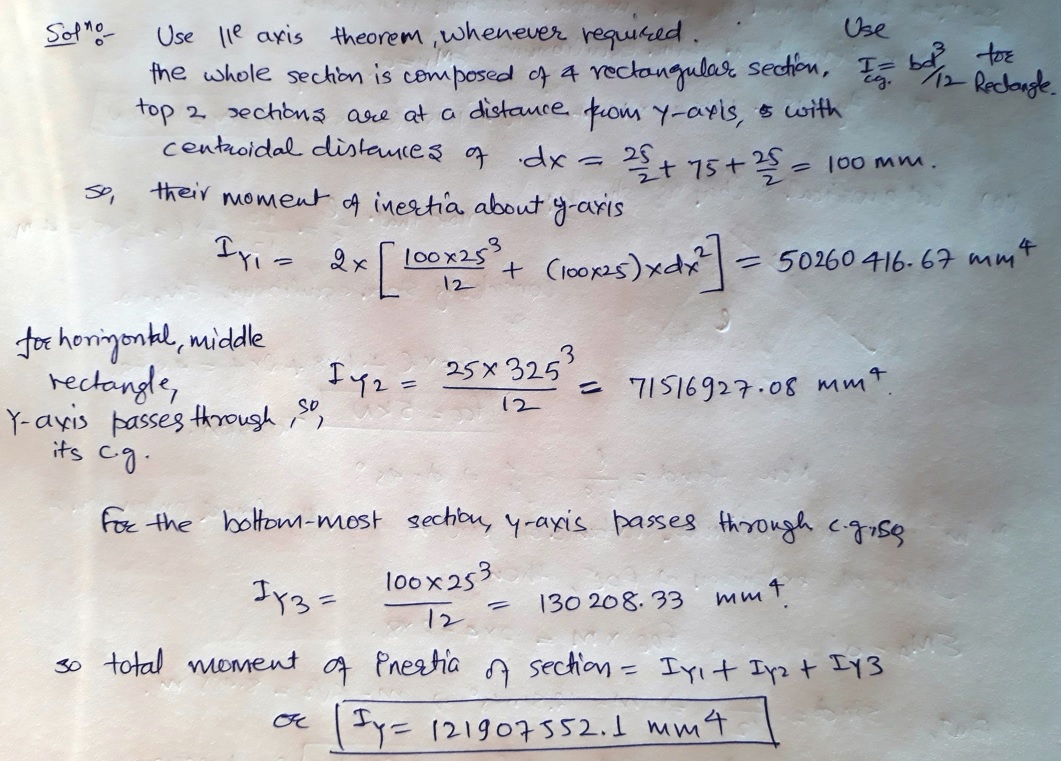 Solnº:- Use 11le axis theorem, whenever required. Use
the whole section is composed of 4 rectangular section, Ic.g. = bd³/12 for Rectangle.
top 2 sections are at a distance from y-axis, with
centroidal distances of dx = 25/2 + 75 + 25/2 = 100 mm.
so, their moment of inertia about y-axis
IY1 = 2x[100x25³/12 + (100x25)xdx²] = 50260416.67 mm⁴
for horizontal, middle
rectangle,
Y-axis passes through, so,
its c.g.
IY2 = 25x325³/12 = 71516927.08 mm⁴.
For the bottom-most section, y-axis passes through c.g, so
IY3 = 100x25³/12 = 130208.33 mm⁴.
so total moment of Inertia of section = IY1 + IY2 + IY3
or Iy = 121907552.1 mm4